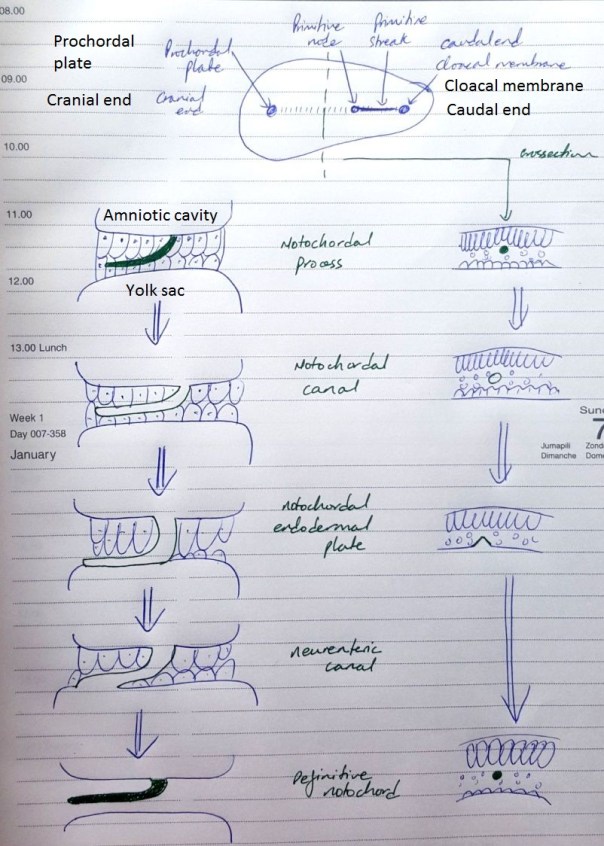 08.00
Primitive
node
Primitive
streak
Prochordal
plate
Prochordal
plate
caudal end
cloacal membrane
09.00
Cloacal membrane
Cranial end
Cranial
end
Caudal end
10.00
crossection
11.00
Amniotic cavity
Notochordal
process
12.00
Yolk sac
13.00 Lunch
Notochordal
canal
Week 1
Day 007-358
January
Sun
7
Jumapili
Dimanche
Zond
Dom
notochordal
endodermal
plate
neurenteric
canal
Definitive
notochord